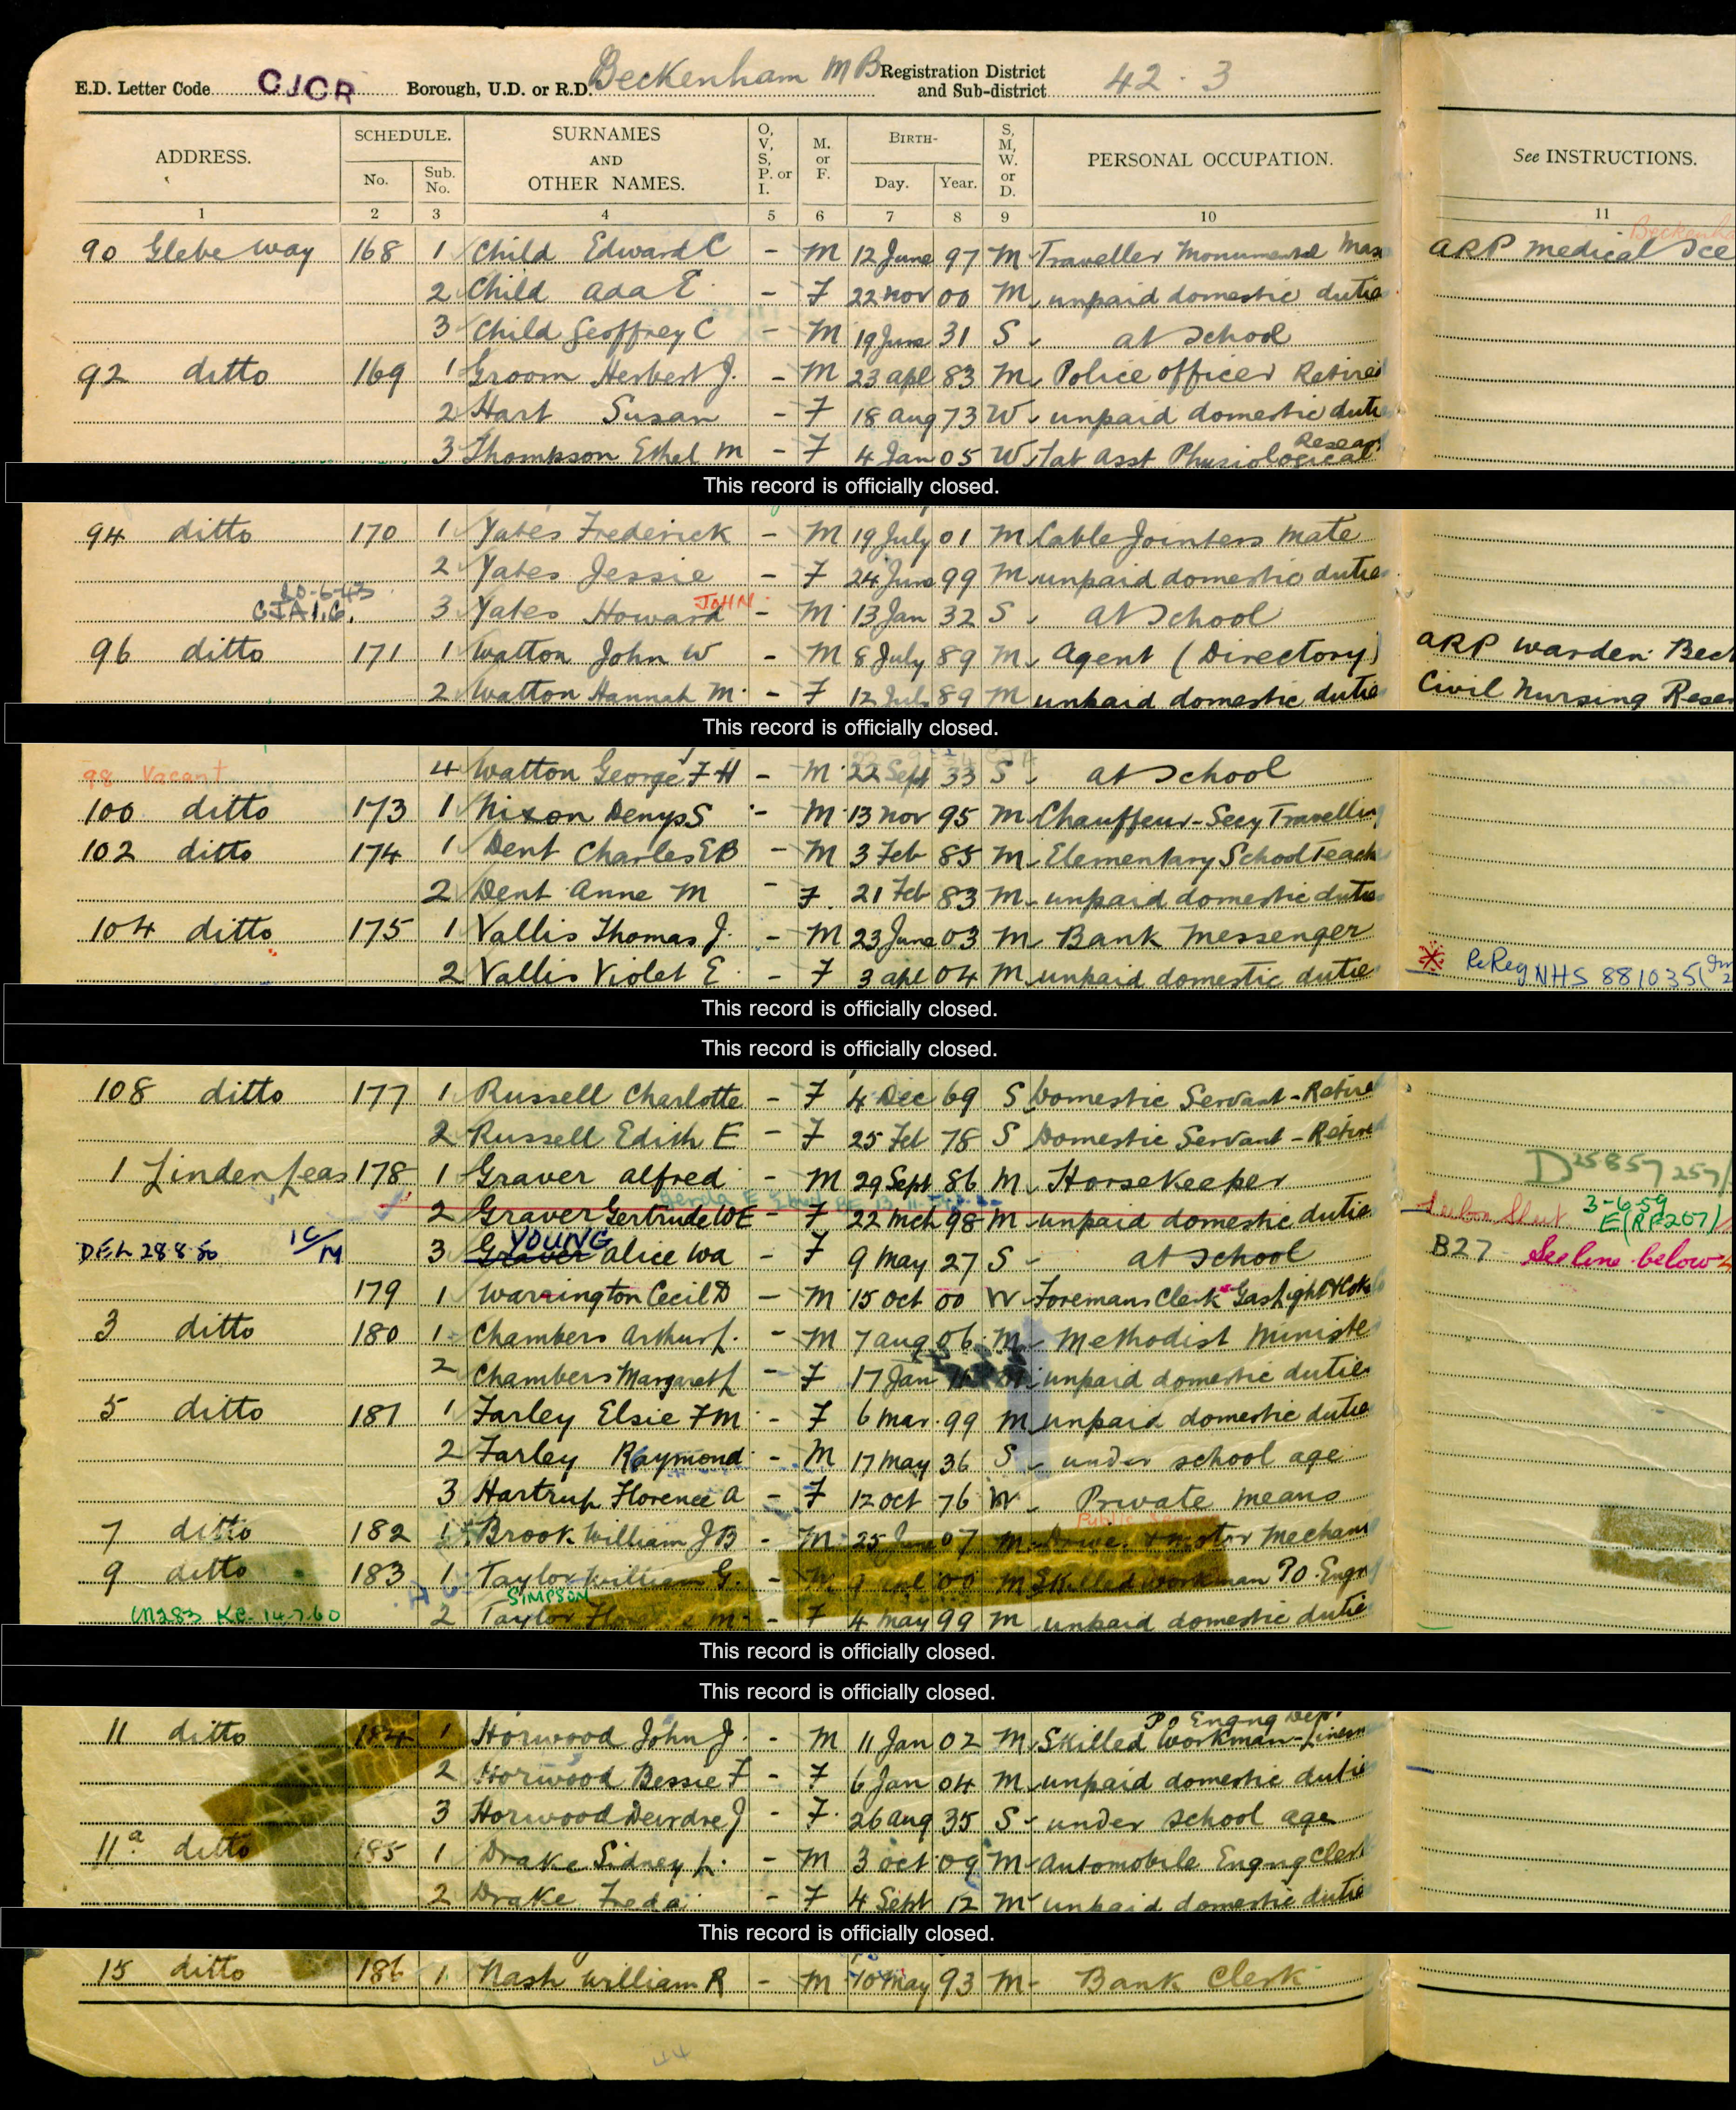 E.D. Letter Code CJCR Borough, U.D. or R.D. Beckenham MB Registration District and Sub-district 42 . 3
ADDRESS. SCHEDULE. No. Sub. No. SURNAMES AND OTHER NAMES. O, V, S, P. or I. M. or F. BIRTH- Day. Year. S, M, W. or D. PERSONAL OCCUPATION. See INSTRUCTIONS.
1 2 3 4 5 6 7 8 9 10 11
90 Glebe Way 168 1 Child Edward C - M 12 June 97 M Traveller Monumental Mas ARP medical
2 Child Ada E - F 22 Nov 00 M unpaid domestic dutie
3 Child Geoffrey C - M 19 June 31 S at School
92 ditto 169 1 Groom Herbert J. - M 23 Apl 83 M Police officer Retired
2 Hart Susan - F 18 Aug 73 W unpaid domestic duti
3 Thompson Ethel M - F 4 Jan 05 W Lab Asst Physiological Resear
This record is officially closed.
94 ditto 170 1 Yates Frederick - M 19 July 01 M Cable Jointers Mate
2 Yates Jessie - F 24 June 99 M unpaid domestic dutie
20-6-43
CJA 1.6. 3 Yates Howard JOHN - M 13 Jan 32 S at School
96 ditto 171 1 Watton John W - M 8 July 89 M Agent (Directory) ARP Warden Beck
2 Watton Hannah M - F 12 July 89 M unpaid domestic dutie Civil Nursing Reser
This record is officially closed.
98 Vacant 4 Watton George F H - M 22 Sept 33 S at School
100 ditto 173 1 Nixon Denys S - M 13 Nov 95 M Chauffeur-Secy Travelling
102 ditto 174 1 Dent Charles E B - M 3 Feb 85 M Elementary School Teach
2 Dent Anne M - F 21 Feb 83 M unpaid domestic dutie
104 ditto 175 1 Vallis Thomas J. - M 23 June 03 M Bank Messenger
2 Vallis Violet E - F 3 Apl 04 M unpaid domestic dutie * ReReg NHS 881035
This record is officially closed.
This record is officially closed.
108 ditto 177 1 Russell Charlotte - F 4 Dec 69 S Domestic Servant - Retire
2 Russell Edith E - F 25 Feb 78 S Domestic Servant - Retired
1 Linden Leas 178 1 Graver Alfred - M 29 Sept 86 M Horsekeeper D 25857 257/
2 Graver Gertrude W E - F 22 Mch 98 M unpaid domestic dutie 3-6-59 E(RF207)
DEL 28.8.50 3 Graver YOUNG Alice W A - F 9 May 27 S at school B27 See line below
179 1 Warrington Cecil D - M 15 Oct 00 W Foremans Clerk Gaslight & Coke
3 ditto 180 1 Chambers Arthur L. - M 7 Aug 06 M Methodist Ministe
2 Chambers Margaret L - F 17 Jan unpaid domestic dutie
5 ditto 181 1 Farley Elsie F M - F 6 Mar 99 M unpaid domestic dutie
2 Farley Raymond - M 17 May 36 S under school age
3 Hartrup Florence A - F 12 Oct 76 W Private means
7 ditto 182 1 Brook William J B - M 25 June 07 M Motor Mechani
9 ditto 183 1 Taylor William G. - M 00 M Skilled Workman P.O. Engn
SIMPSON
2 Taylor M - F 4 May 99 M unpaid domestic dutie
This record is officially closed.
This record is officially closed.
11 ditto 184 1 Horwood John J. - M 11 Jan 02 M Skilled Workman PO Engng Dep.
2 Horwood Bessie F - F 6 Jan 04 M unpaid domestic dutie
3 Horwood Deirdre J - F 26 Aug 35 S under school age
11a ditto 185 1 Drake Sidney L. - M 3 Oct 09 M Automobile Engng Clerk
2 Drake Freda - F 4 Sept 12 M unpaid domestic dutie
This record is officially closed.
15 ditto 186 1 Nash William R - M 10 May 93 M Bank Clerk